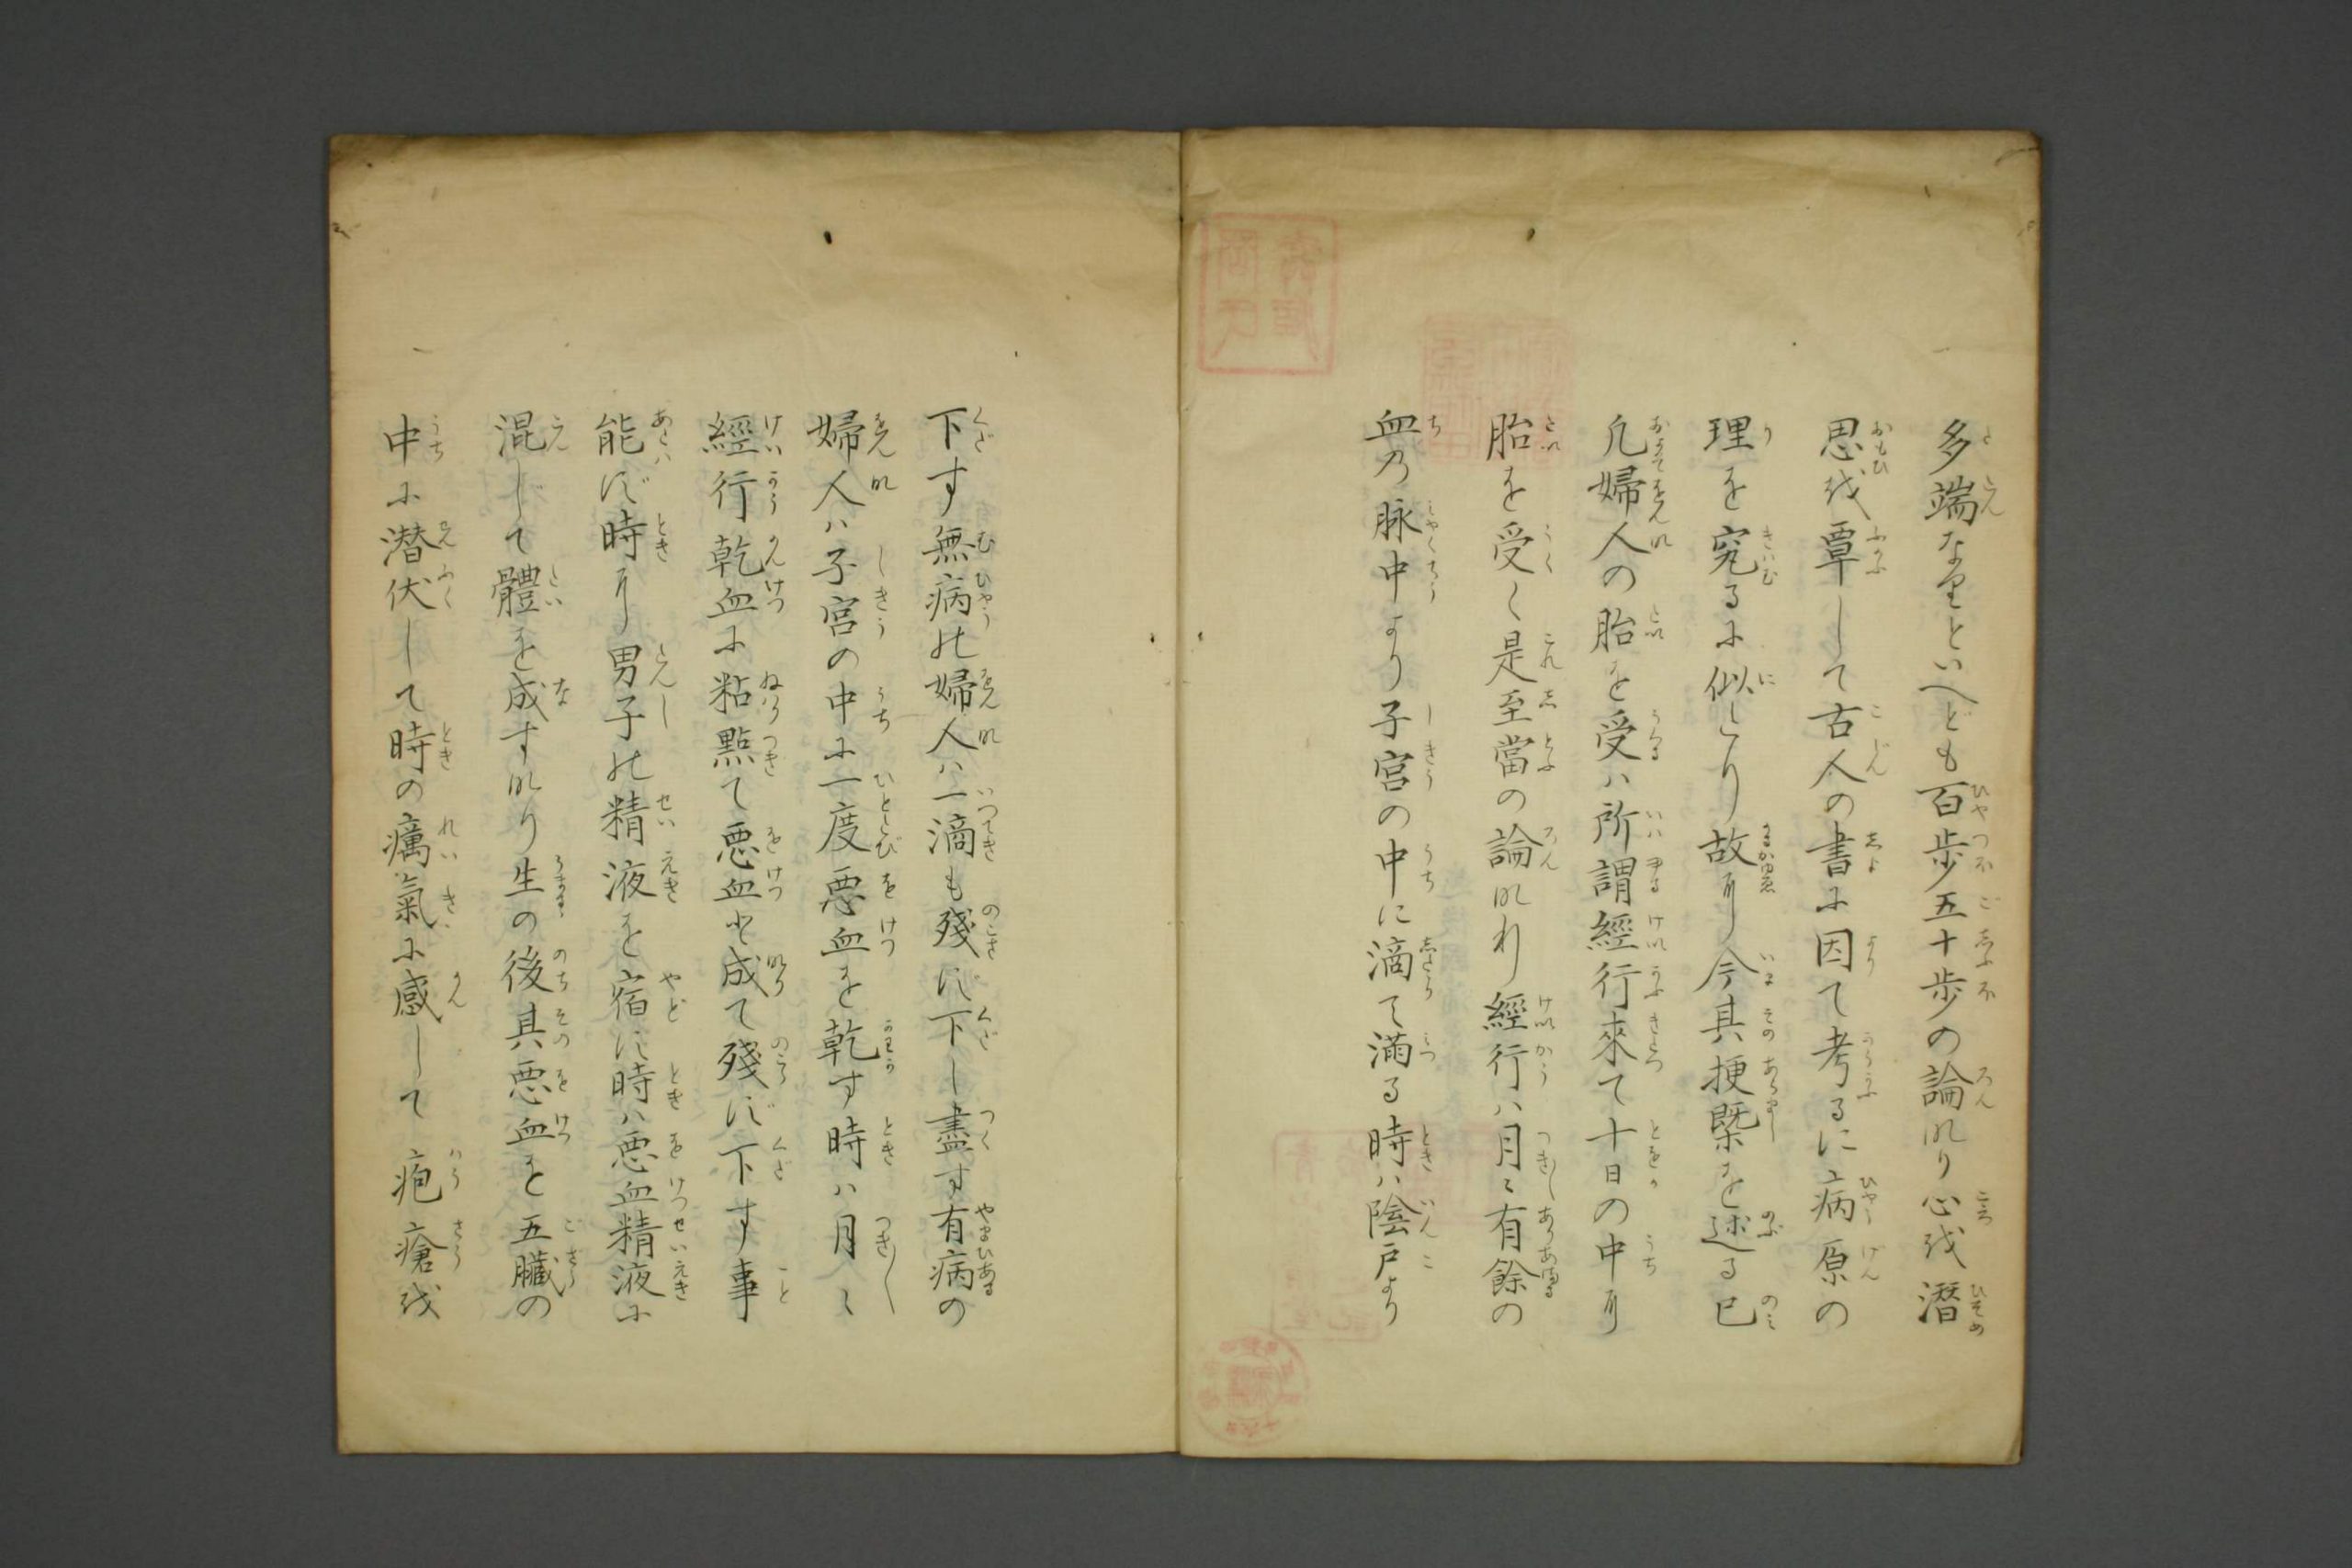 多端なりといへども百歩五十歩の論なり心を潜
思を覃して古人の書に因て考るに病原の
理を究るに似たり故に今其梗槩を述る已
凢婦人の胎を受は所謂經行來て十日の中に
胎を受く是至當の論なり經行は月〻有餘の
血の脉中より子宮の中に滴て滿る時は陰戸より
下す無病の婦人は一滴も殘ず下し盡す有病の
婦人は子宮の中に一度悪血を乾す時は月〻
經行乾血に粘㸃て悪血と成て殘ず下す事
能ず時に男子の精液を宿す時は悪血精液に
混じて體を成すなり生の後其悪血と五臓の
中に潜伏して時の癘氣に感して疱瘡を